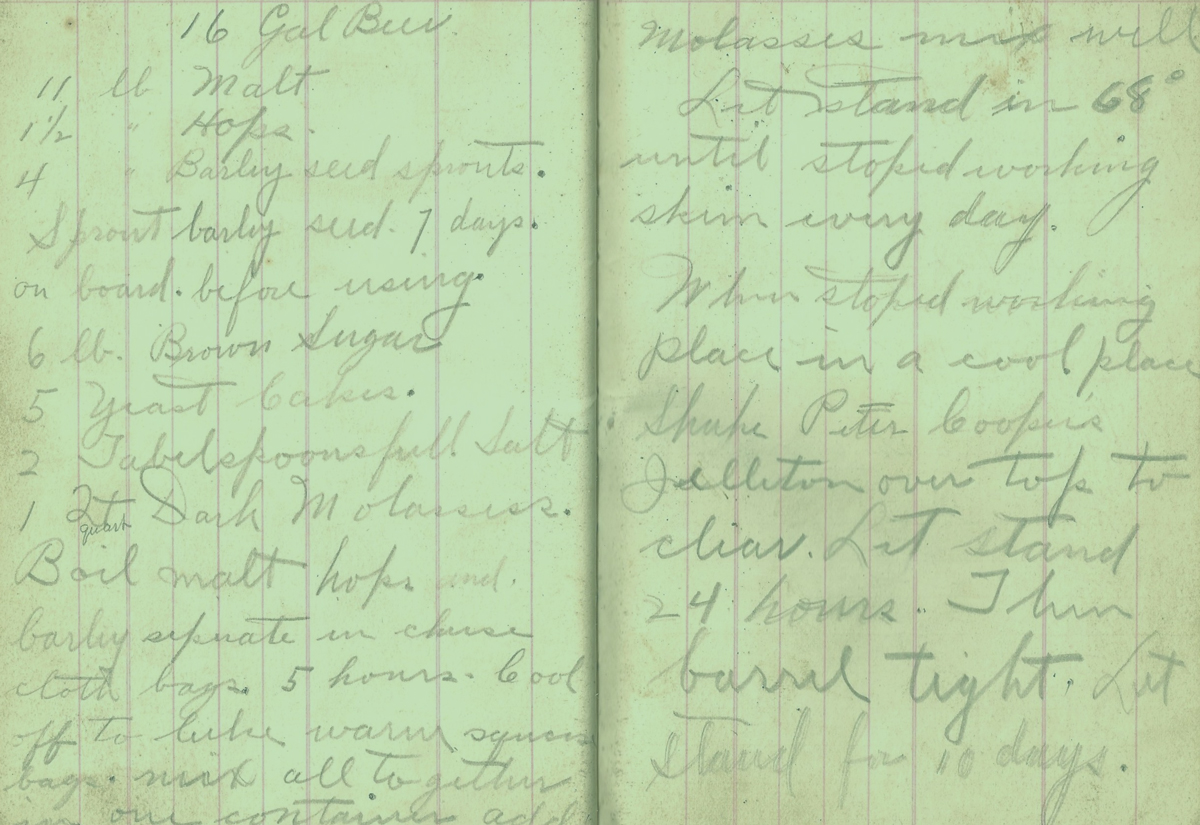 16 Gal Beer
11 lb Malt
1 1/2 " Hops.
4 " Barley seed sprouts.
Sprout barley seed. 7 days.
on board. before using.
6 lb. Brown Sugar
5 Yeast Cakes.
2 Tabelspoonsfull Salt
1 Qt Dark Molasses.
quart
Boil malt hops and.
barley seperate in cheese
cloth bags. 5 hours. Cool
off to luke warm squeese
bags. mix all together
in one container add
Molasses mix well
Let stand in 68°
until stoped working
skim every day.
When stoped working
place in a cool place
Shake Peter Cooper's
Jelleton over top to
clear. Let stand
24 hours. Then
barrel tight. Let
stand for 10 days.